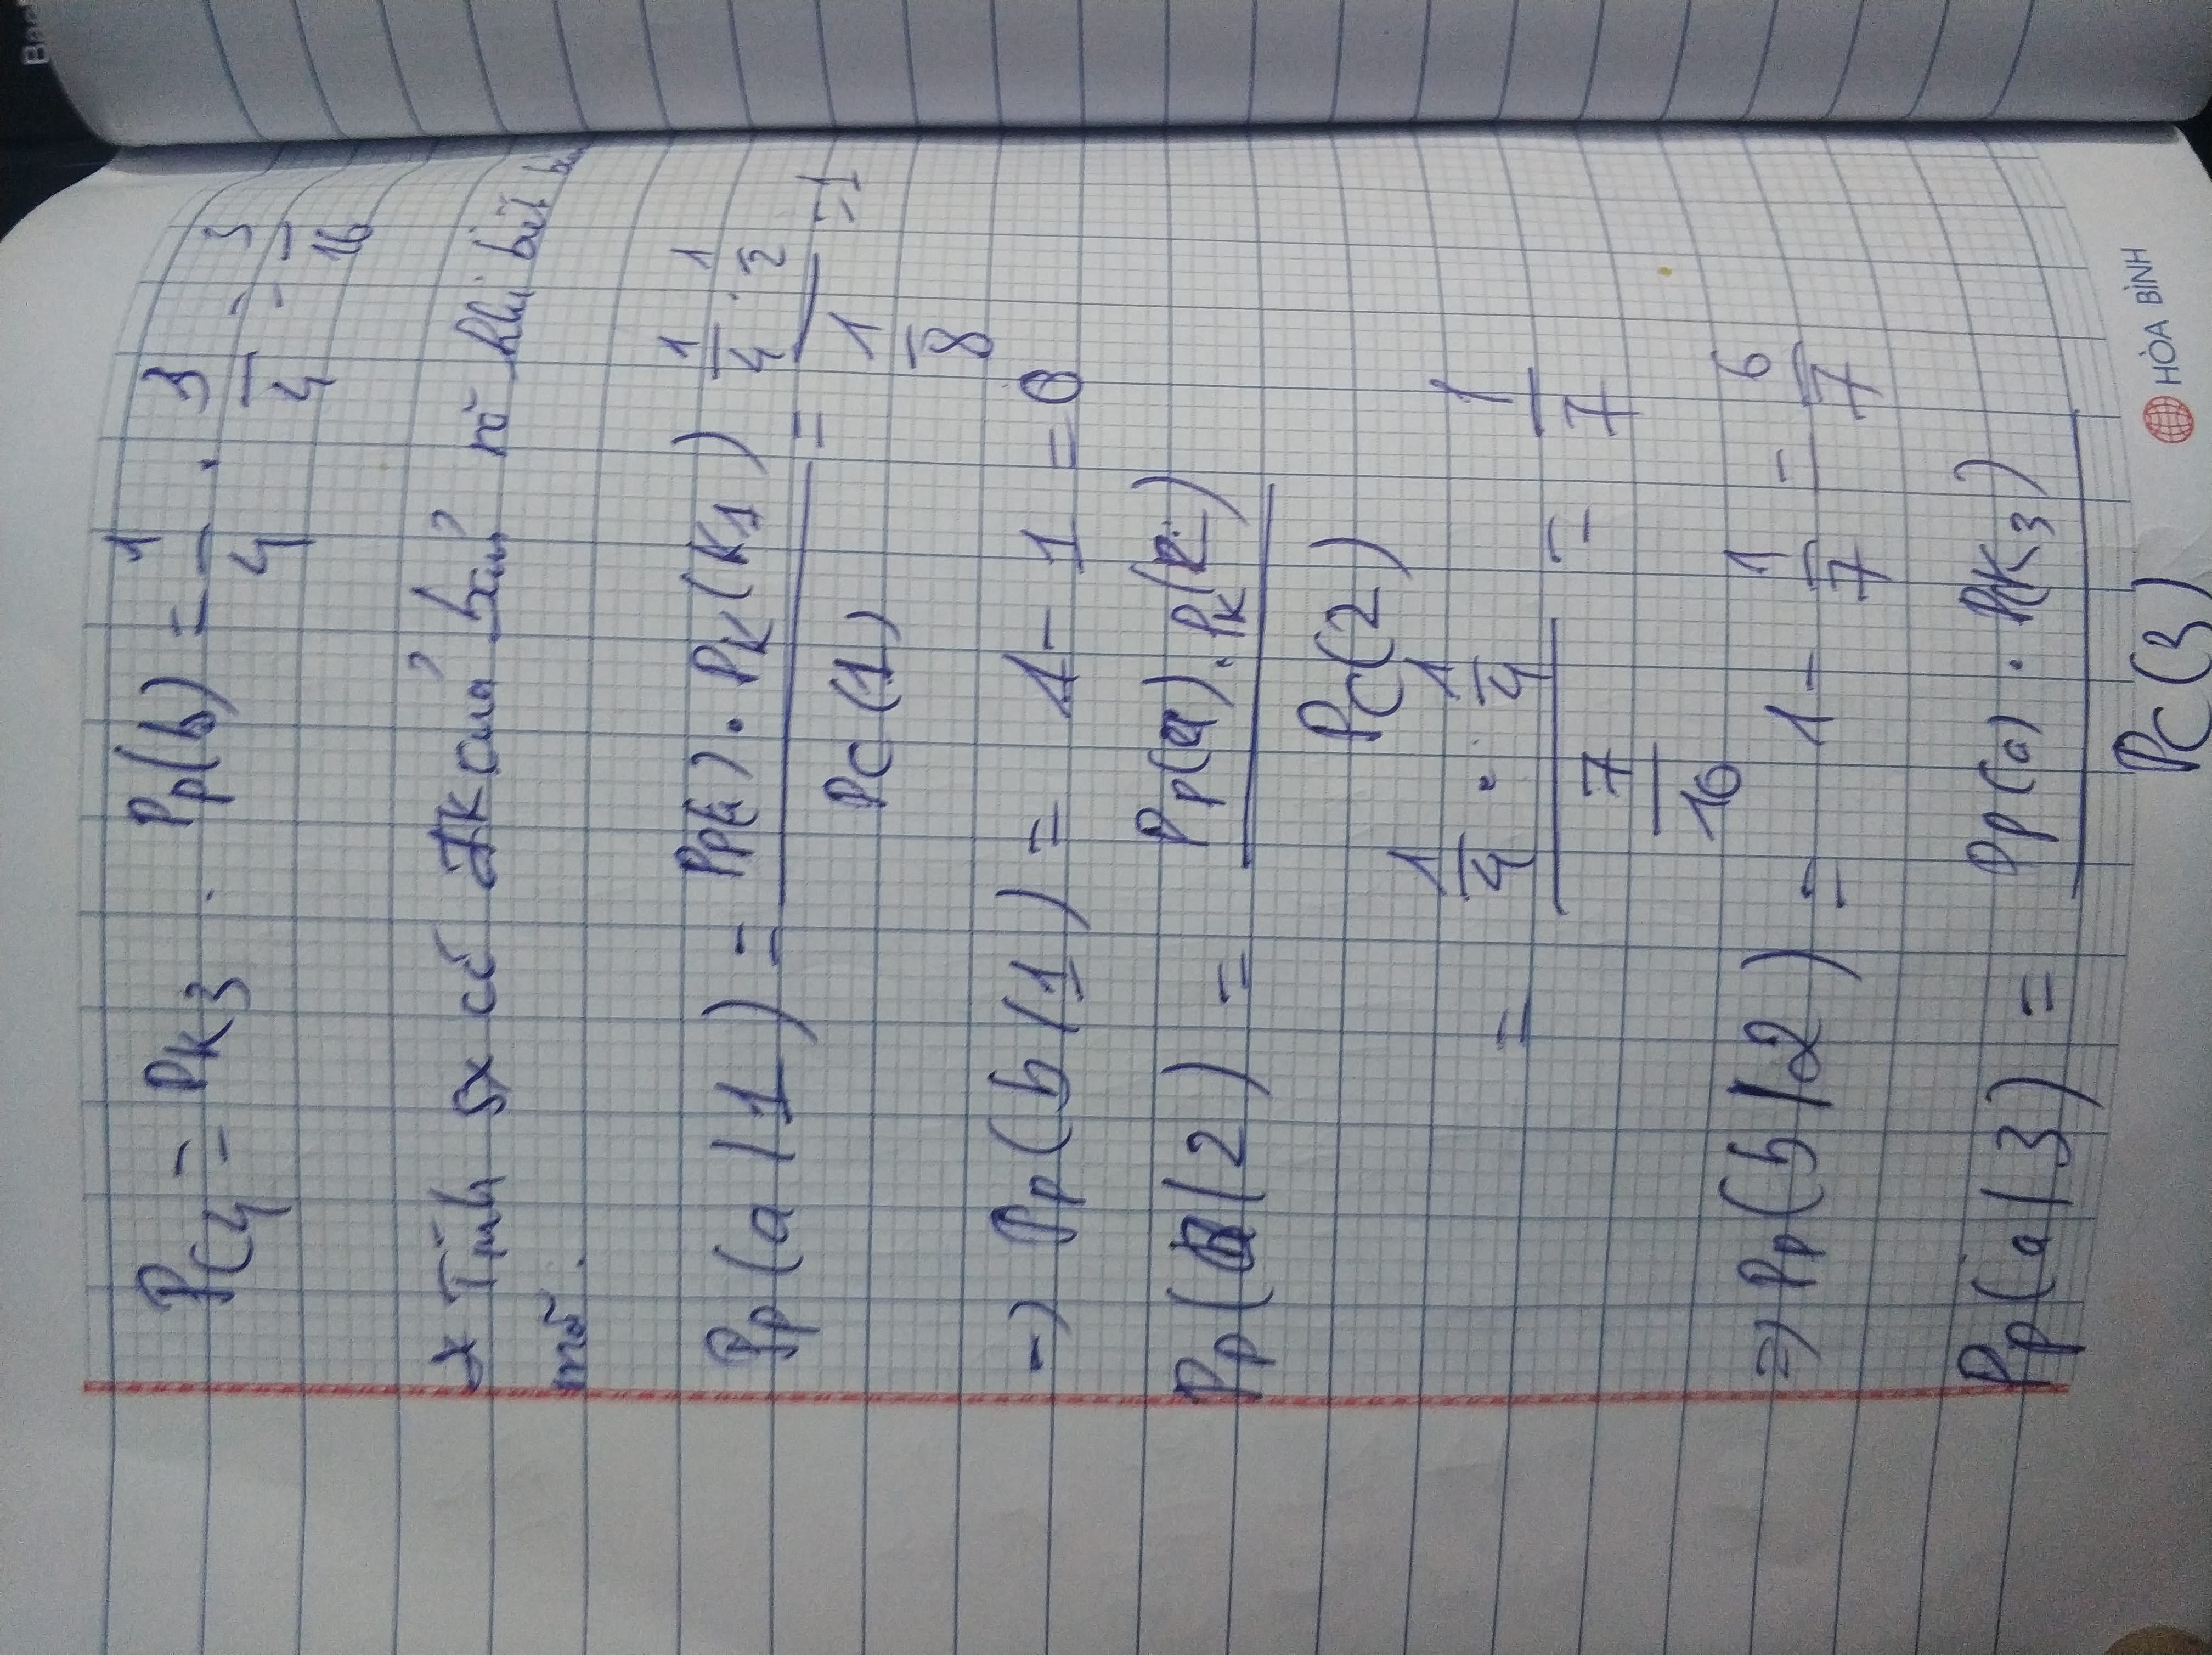 P_C4 = P_K3 . P_P(b) = 1/4 . 3/4 = 3/16
* Tính sx có ĐK của bản rõ khi biết bản
mã.
P_P(a/1) = (P_P(a) . P_K(K1)) / P_C(1) = (1/4 . 1/2) / (1/8) = 1
→ P_P(b/1) = 1 - 1 = 0
P_P(a/2) = (P_P(a) . P_K( )) / P_C(2)
= (1/4 . 1/4) / (7/16) = 1/7
⇒ P_P(b/2) = 1 - 1/7 = 6/7
P_P(a/3) = (P_P(a) . P(K3)) / P_C(3)
HÒA BÌNH